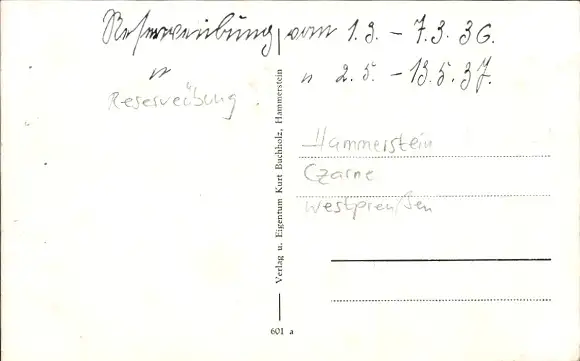 Reserveübung vom 1.3. - 7.3. 36.
" " 2.5. - 13.5.37.
Reserveübung
Hammerstein
Czarne
Westpreußen
Verlag u. Eigentum Kurt Buchholz, Hammerstein
601 a